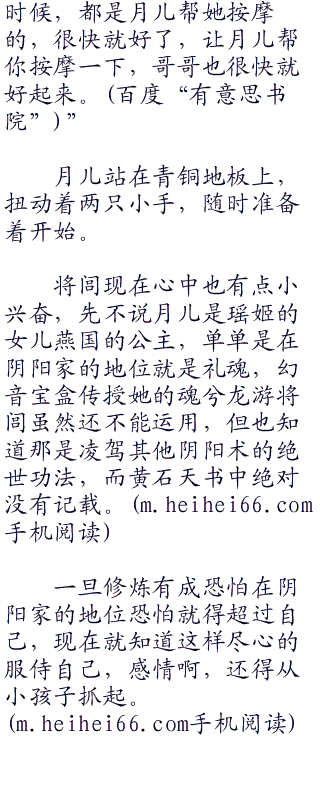 时候，都是月儿帮她按摩
的，很快就好了，让月儿帮
你按摩一下，哥哥也很快就
好起来。(百度“有意思书
院”)”
月儿站在青铜地板上，
扭动着两只小手，随时准备
着开始。
将闾现在心中也有点小
兴奋，先不说月儿是瑶姬的
女儿燕国的公主，单单是在
阴阳家的地位就是礼魂，幻
音宝盒传授她的魂兮龙游将
闾虽然还不能运用，但也知
道那是凌驾其他阴阳术的绝
世功法，而黄石天书中绝对
没有记载。(m.heihei66.com
手机阅读)
一旦修炼有成恐怕在阴
阳家的地位恐怕就得超过自
己，现在就知道这样尽心的
服侍自己，感情啊，还得从
小孩子抓起。
(m.heihei66.com手机阅读)